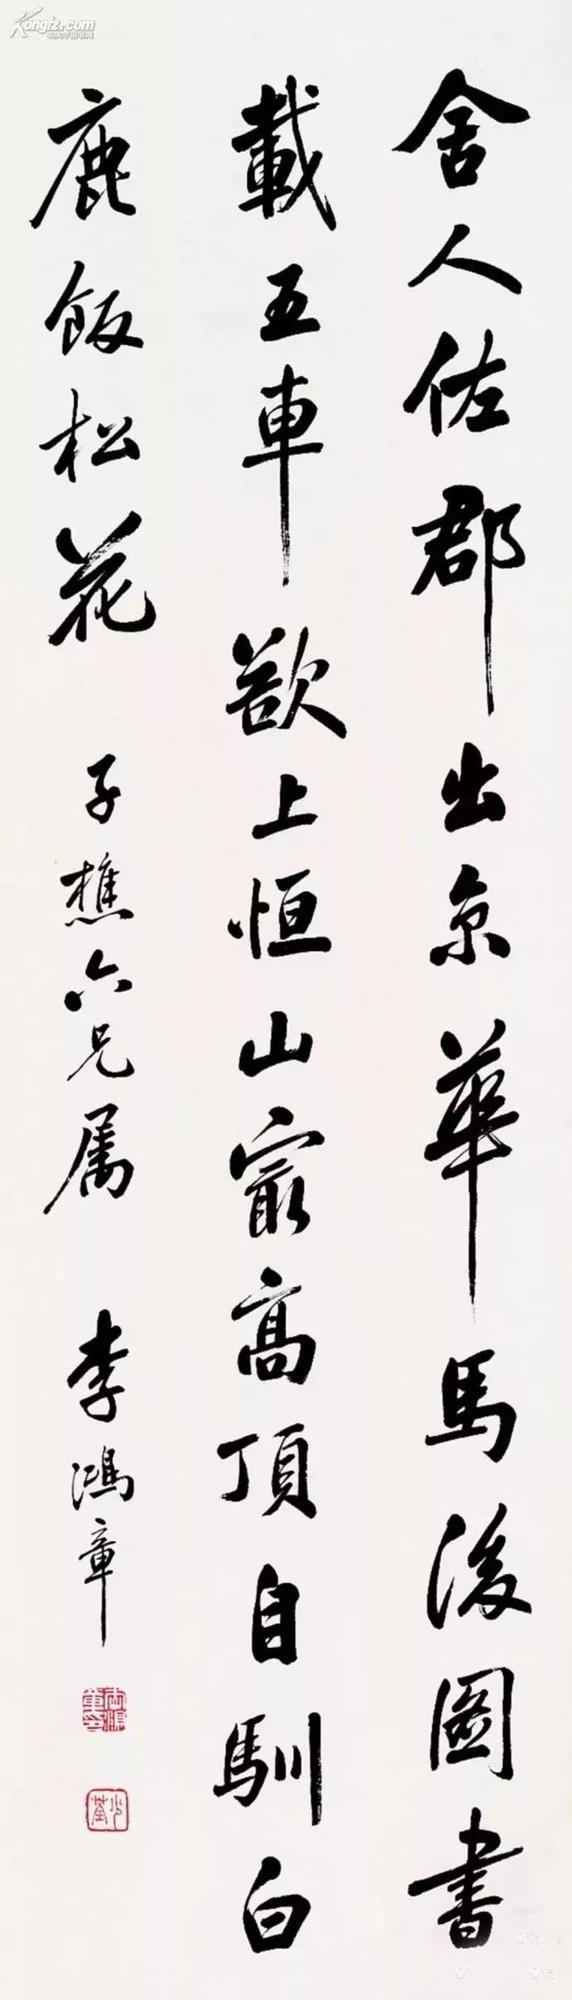 舍人佐郡出京華馬後圖書
載五車欲上恒山最高頂自馴白
鹿飯松花
子樵六兄属
李鴻章
少荃
Kongfz.com